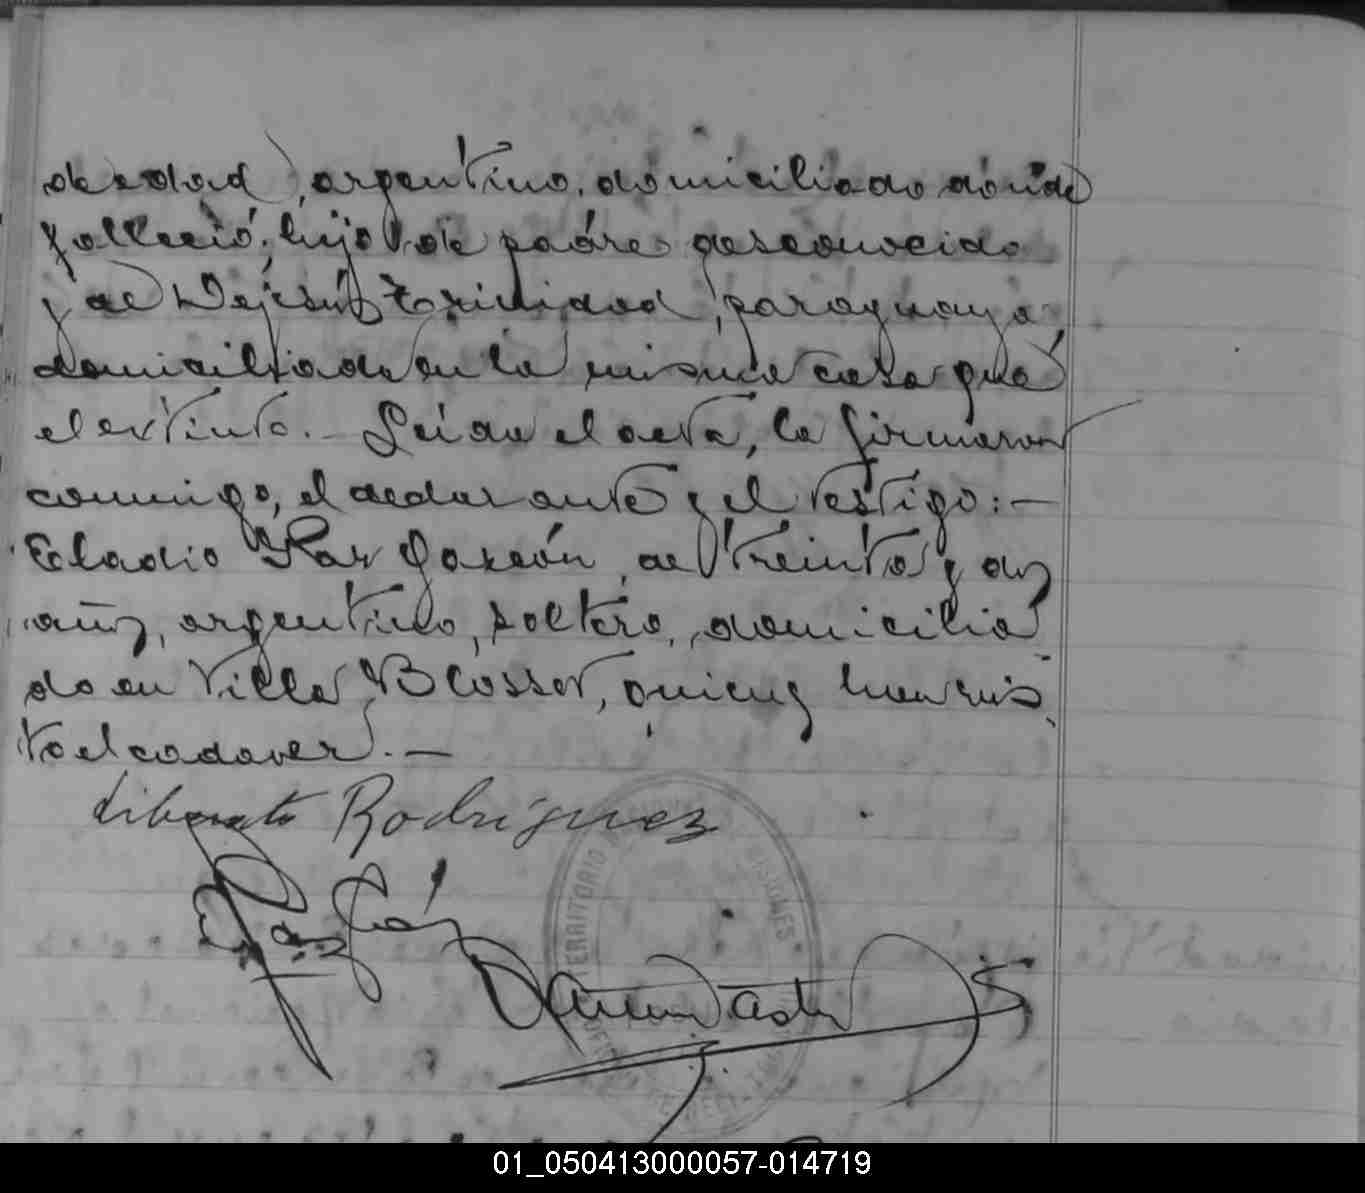 de edad, argentino, domiciliado dónde
falleció; hijo de padre desconocido
y de Trinidad, paraguaya,
domiciliada en la misma casa que
el extinto.- Leida el acta, la firmaron
conmigo, el declarante y el testigo:-
Eladio Garzón, de treinta y dos
años, argentino, soltero, domicilia
do en Villa Blosset, quienes han vis
to el cadaver.-
Liberato Rodriguez
TERRITORIO MISIONES
01_050413000057-014719